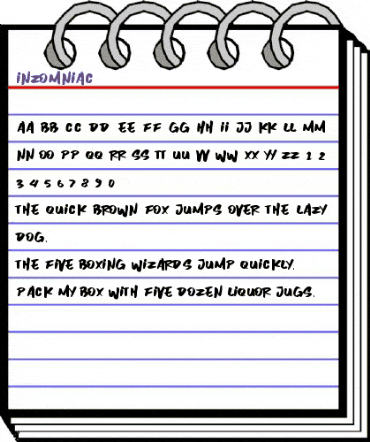 iNZOMNiAC
AA BB CC DD EE FF GG HH ii JJ KK LL MM
NN OO PP QQ RR SS TT UU VV WW XX YY ZZ 1 2
3 4 5 6 7 8 9 0
THE QUiCK BROWN FOX JUMPS OVER THE LAZY
DOG.
THE FiVE BOXiNG WiZARDS JUMP QUiCKLY.
PACK MY BOX WiTH FiVE DOZEN LiQUOR JUGS.